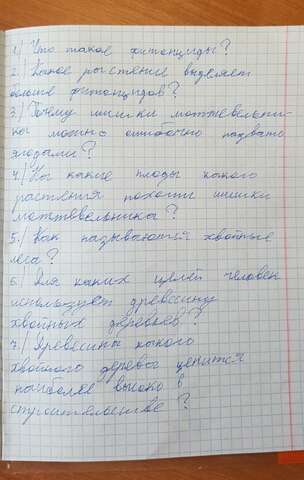 1.) Что такое фитонциды?
2.) Какое растение выделяет
больше фитонцидов?
3.) Почему шишки можжевельни-
ка можно ошибочно назвать
ягодами?
4.) На какие плоды какого
растения похожи шишки
можжевельника?
5.) Как называются хвойные
леса?
6.) Для каких целей человек
использует древесину
хвойных деревьев?
7.) Древесины какого
хвойного дерева ценится
наиболее высоко в
строительстве?